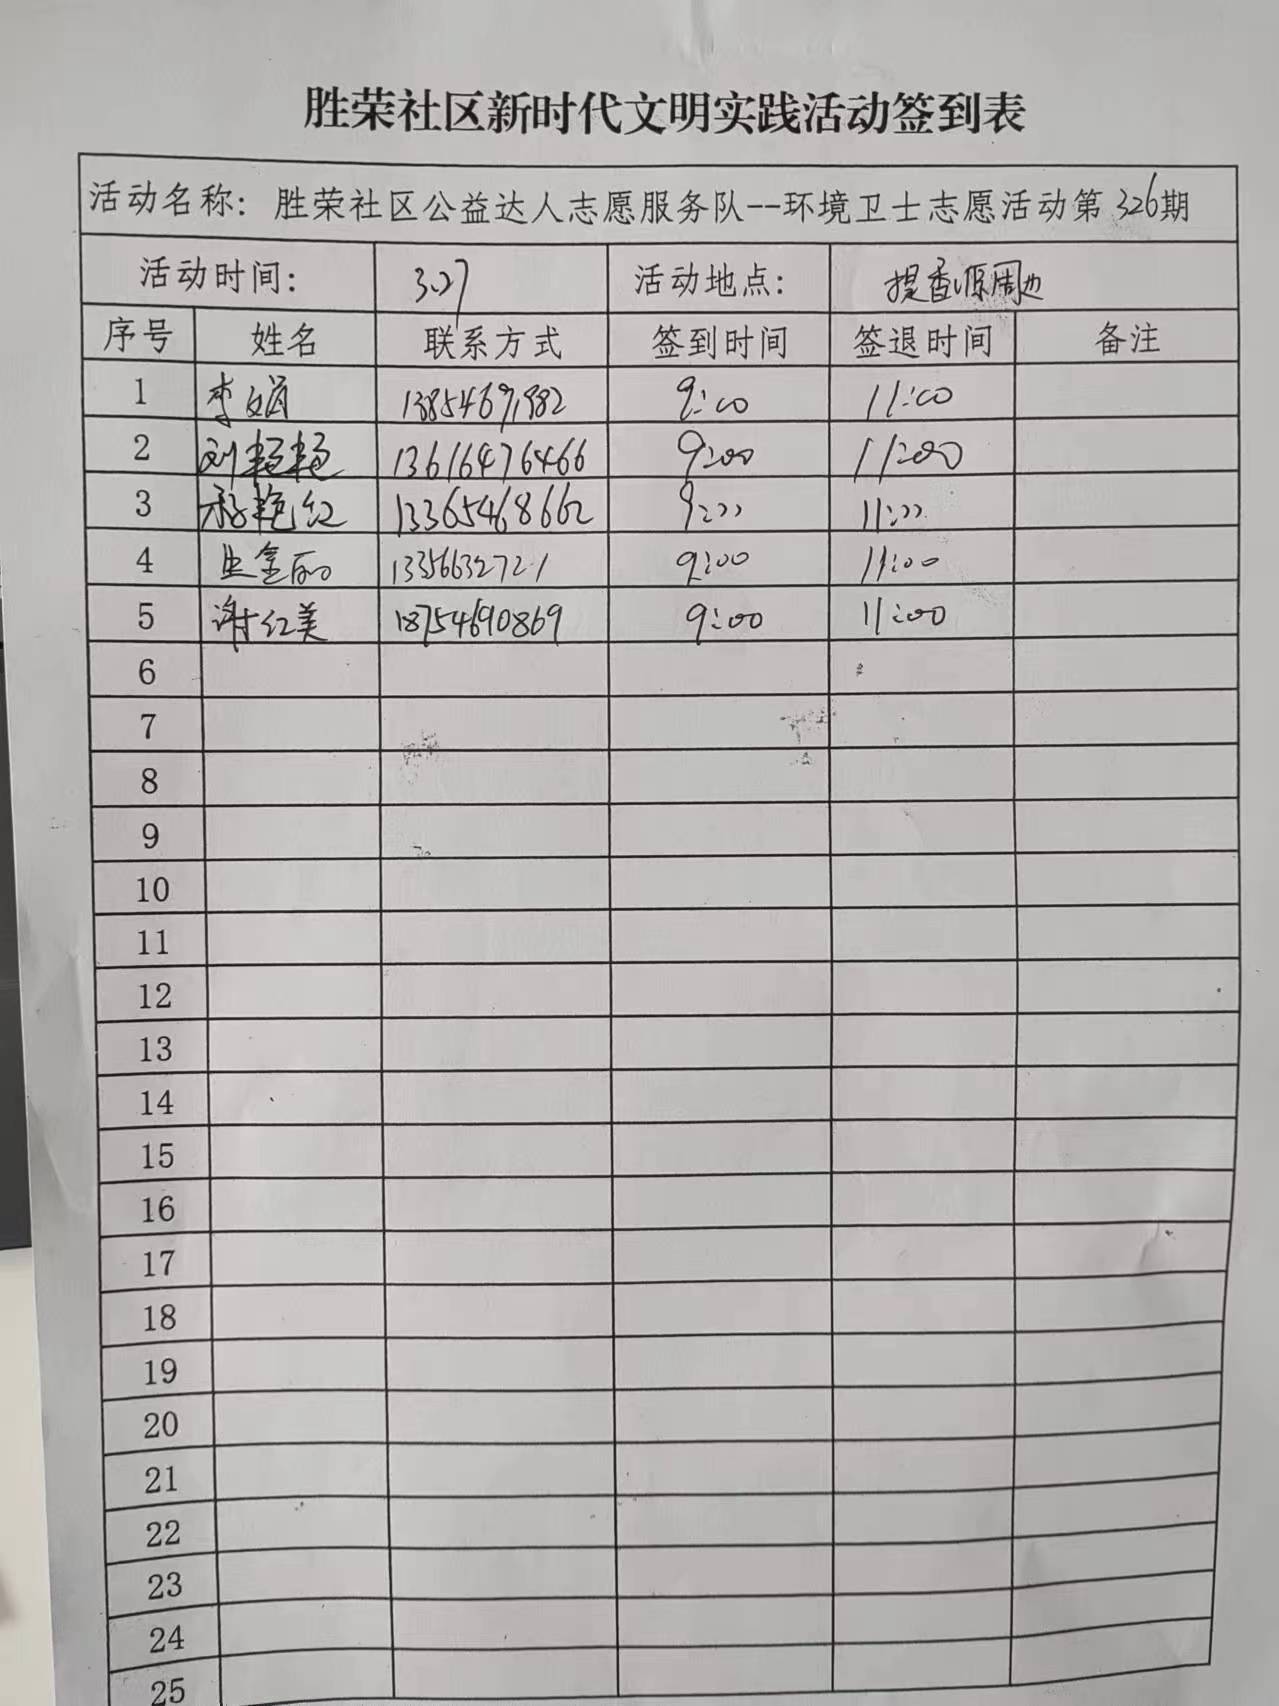 胜荣社区新时代文明实践活动签到表
活动名称：胜荣社区公益达人志愿服务队--环境卫士志愿活动第326期
活动时间： 3.27 活动地点： 提香源周边
序号 姓名 联系方式 签到时间 签退时间 备注
1 李娟 9:00 11:00
2 刘艳艳 13616476466 9:00 11:00
3 艳红 13365468662 9:00 11:00
4 9:00 11:00
5 谢红美 18754690869 9:00 11:00
6
7
8
9
10
11
12
13
14
15
16
17
18
19
20
21
22
23
24
25